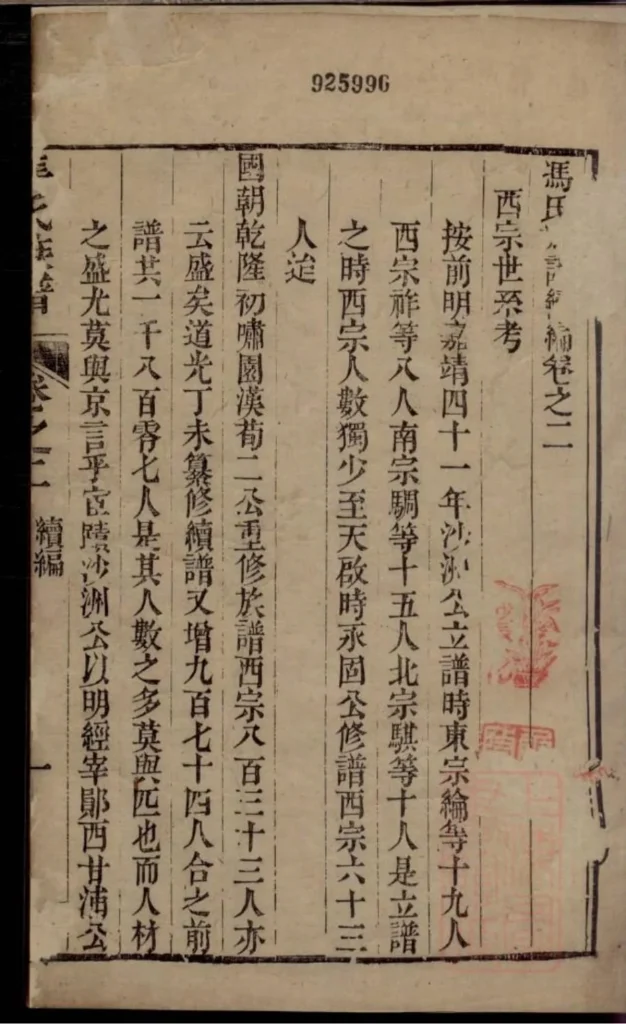 925996
馮氏族譜續編卷之二
西宗世系考
按前明嘉靖四十一年沙洲公立譜時東宗綸等十九人
西宗祚等八人南宗騆等十五人北宗騏等十人是立譜
之時西宗人數獨少至天啟時永固公修譜西宗六十三
人迨
國朝乾隆初嘯園漢荀二公重修族譜西宗八百三十三人亦
云盛矣道光丁未纂修續譜又增九百七十四人合之前
譜其一千八百零七人是其人數之多莫與匹也而人材
之盛尤莫與京言乎宦蹟沙洲公以明經宰鄖西甘浦公
氏族譜
卷之二
續編
一